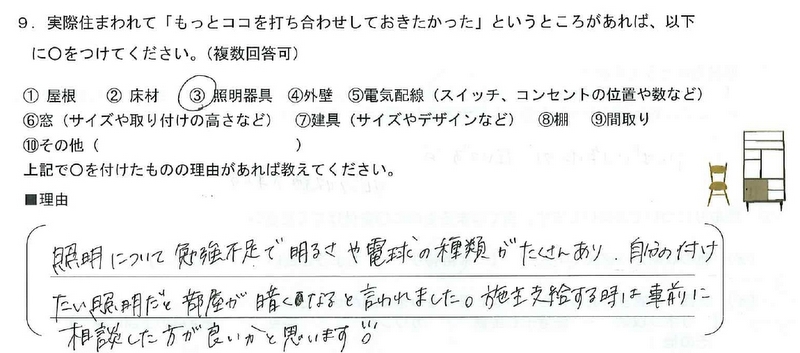 9．実際住まわれて「もっとココを打ち合わせしておきたかった」というところがあれば、以下
に○をつけてください。（複数回答可）
① 屋根　② 床材　③ 照明器具　④外壁　⑤電気配線（スイッチ、コンセントの位置や数など）
⑥窓（サイズや取り付けの高さなど）　⑦建具（サイズやデザインなど）　⑧棚　⑨間取り
⑩その他（　　　　　　　　　　）
上記で○を付けたものの理由があれば教えてください。
■理由
照明について勉強不足で明るさや電球の種類がたくさんあり、自分の付け
たい照明だと部屋が暗くなると言われました。施主支給する時は事前に
相談した方が良いかと思います